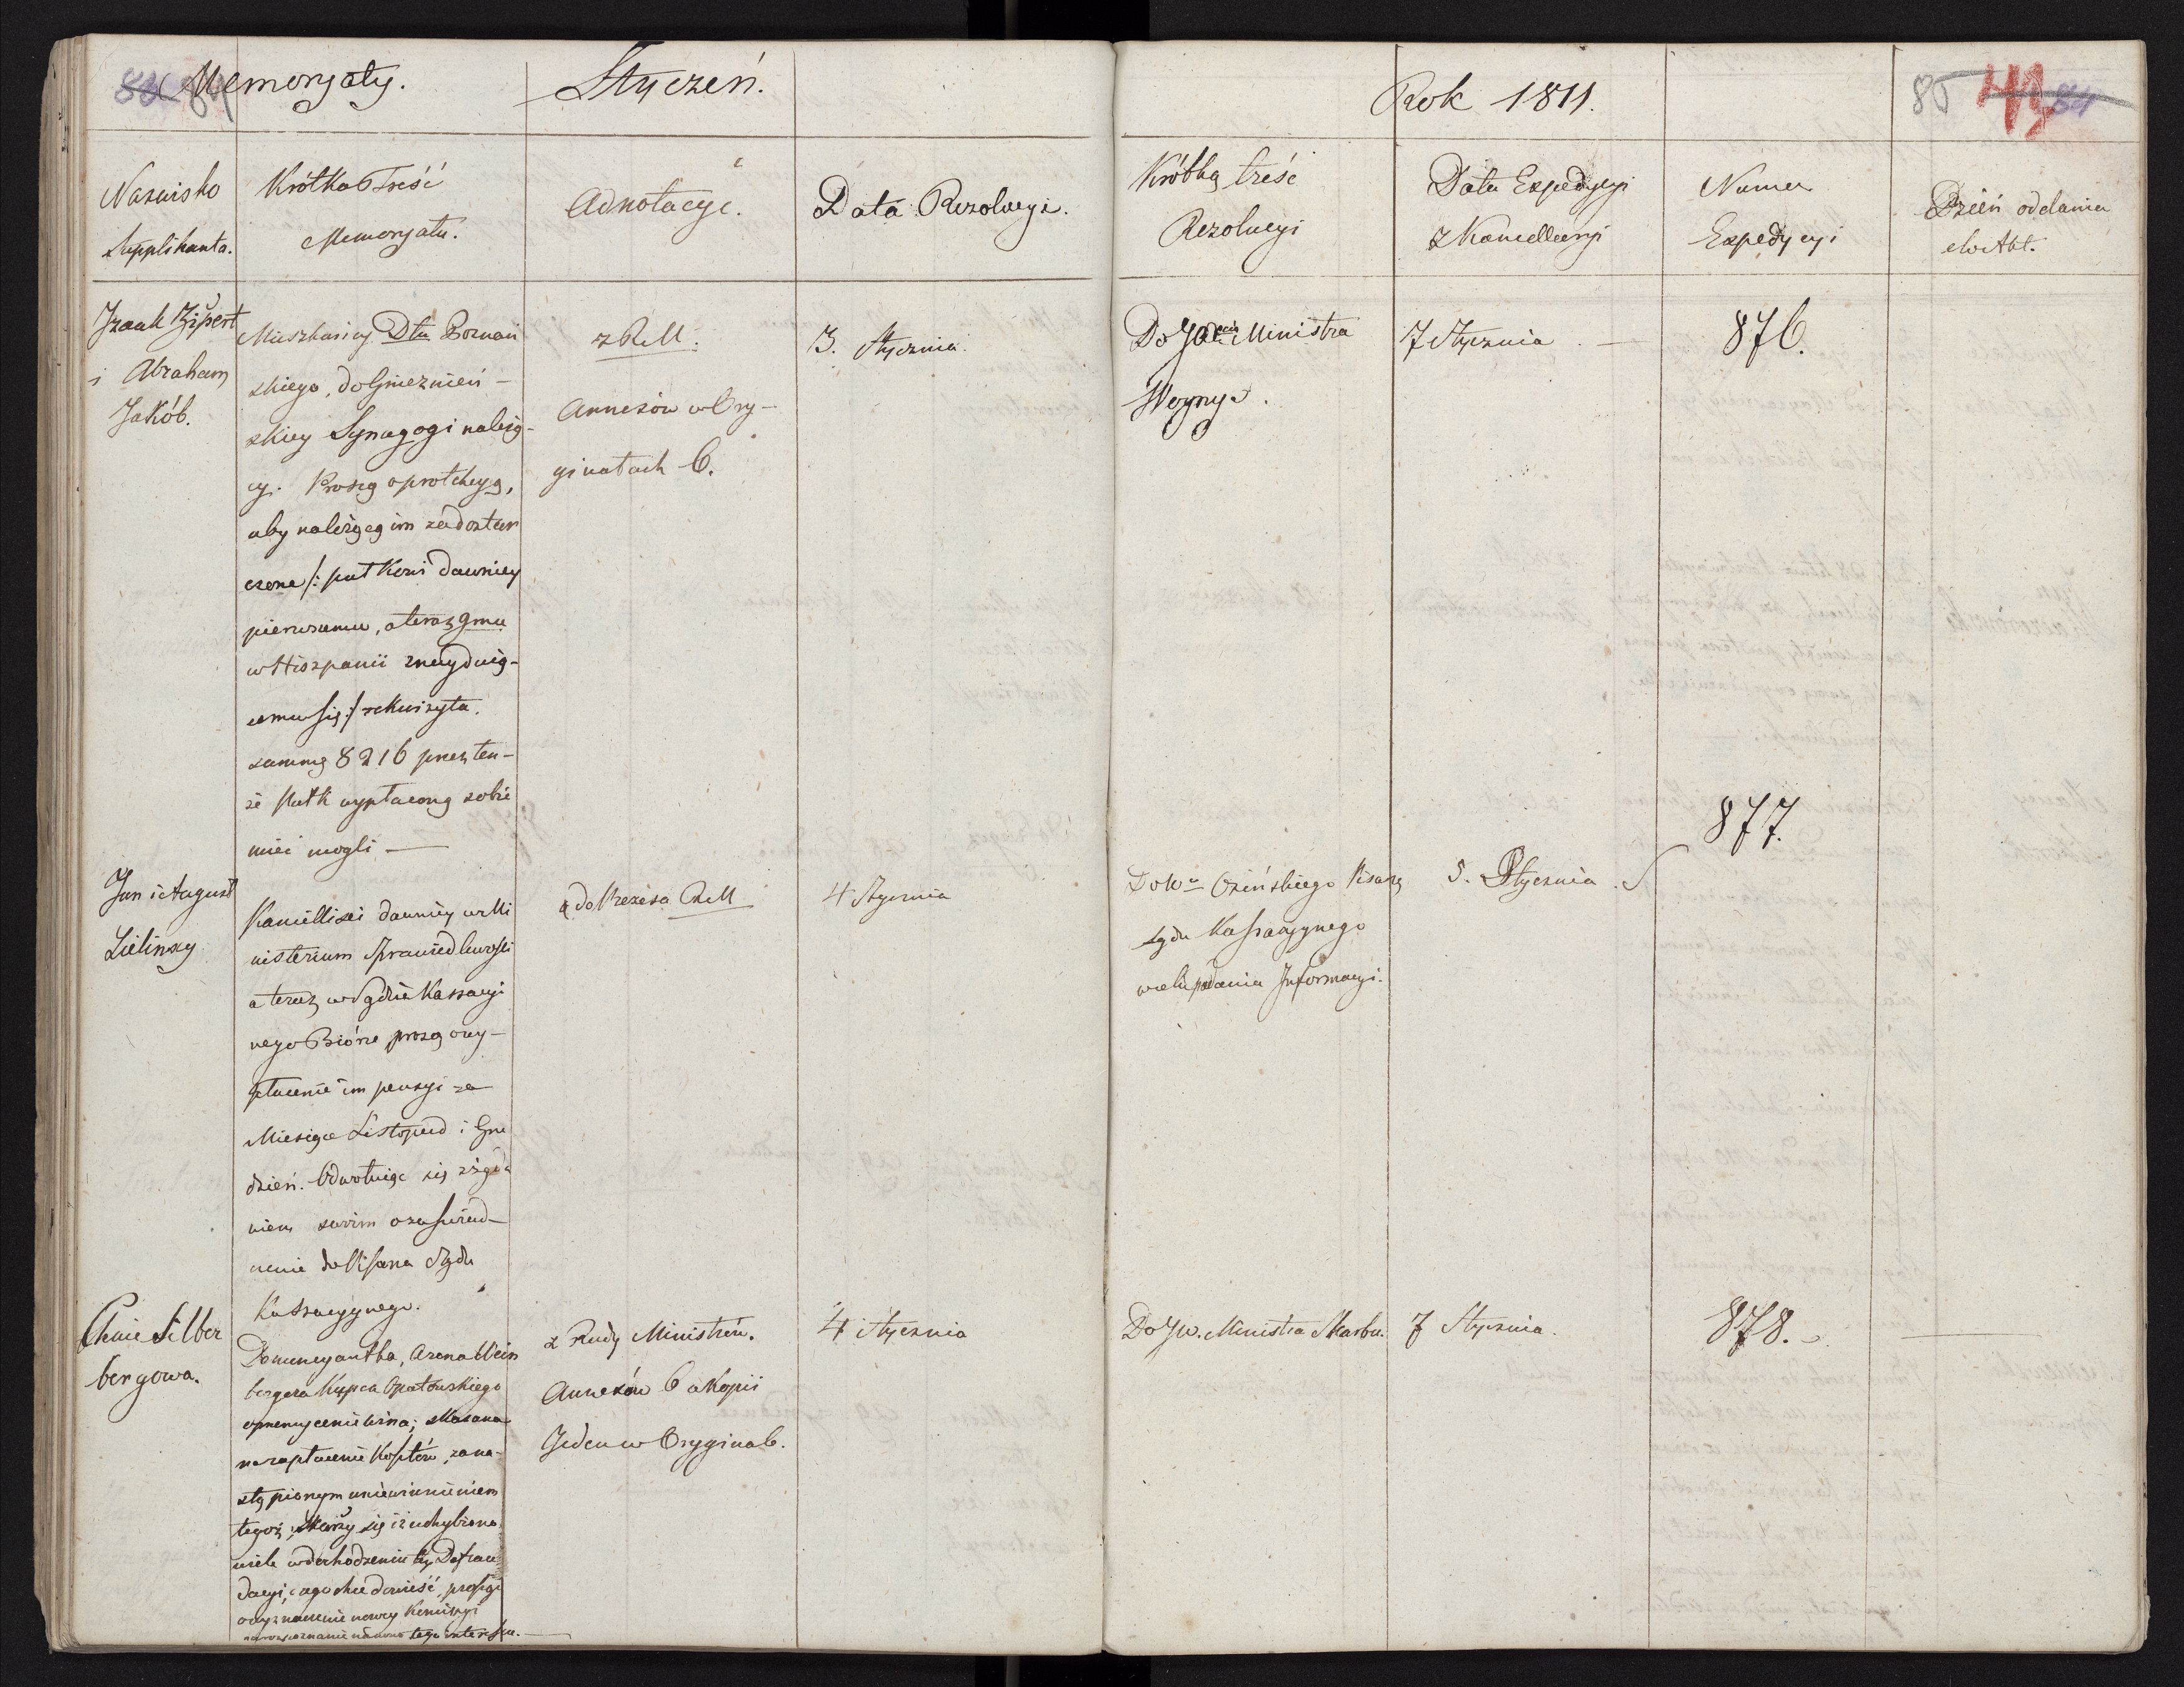 Memoryały.
Styczeń.
Rok 1811.
85
Nazwisko
Supplikanta.
Krótka Treść
Memoryału.
Adnotacye.
Data Rezolucyi.
Krótką treść
Rezolucyi
Data Expedycyi
z Kancellaryi
Numer
Expedycyi
Dzień oddania
do Akt.
Izaak
i Abraham
Jakób.
Mieszkańcy Dtu Poznań
skiego, do Gnieznień-
skiey Synagogi należą-
cy. Proszą o protekcyą,
aby należącą im za dostar
czone /: pułkowi dawniey
pierwszemu, a teraz 9mu
w Hiszpanii znayduią-
cemu się :/ rekwizyta.
summę 8216 przez ten-
że Pułk wypłaconą sobie
mieć mogli —
z RM.
Annexów w Ory-
ginałach 6.
3. Stycznia.
Do JW Ministra
Woyny.
7 Stycznia. —
876.
Jan i August
Zielinscy
Kancellisci dawniey w Mi
nisterium Sprawiedliwości
a teraz w Sądzie Kassacyi
nego Biórze proszą o wy-
płacenie im pensyi za
Miesiące Listopad i Gru
dzień. Odwołuiąc się z żąda
niem swoim o zaświad-
czenie do Pisarza Sądu
Kassacyynego.
do Prezesa RM
4 Stycznia
Do Osińskiego Pisarza
Sądu Kassacyynego
w celu podania Informacyi.
5. Stycznia.
877.
Chaie Silber
bergowa.
Denuncyantka, Arona Wein
bergera Kupca Opatowskiego
o przemycenie wina; skazana
na zapłacenie Kosztów, za na-
stąpionym uniewinnieniem
tegoż, skarży się iż uchybiono
wiele w dochodzeniu tey Defrau
dacyi, czego chce dowieść, prosząc
o wyznaczenie nowey Kommissyi
na rozpoznanie na nowo tego interessu. —
z Rady Ministrów.
Annexów 6 w Kopii
Jeden w Oryginale.
4 Stycznia
Do JW. Ministra Skarbu.
7 Stycznia.
878.